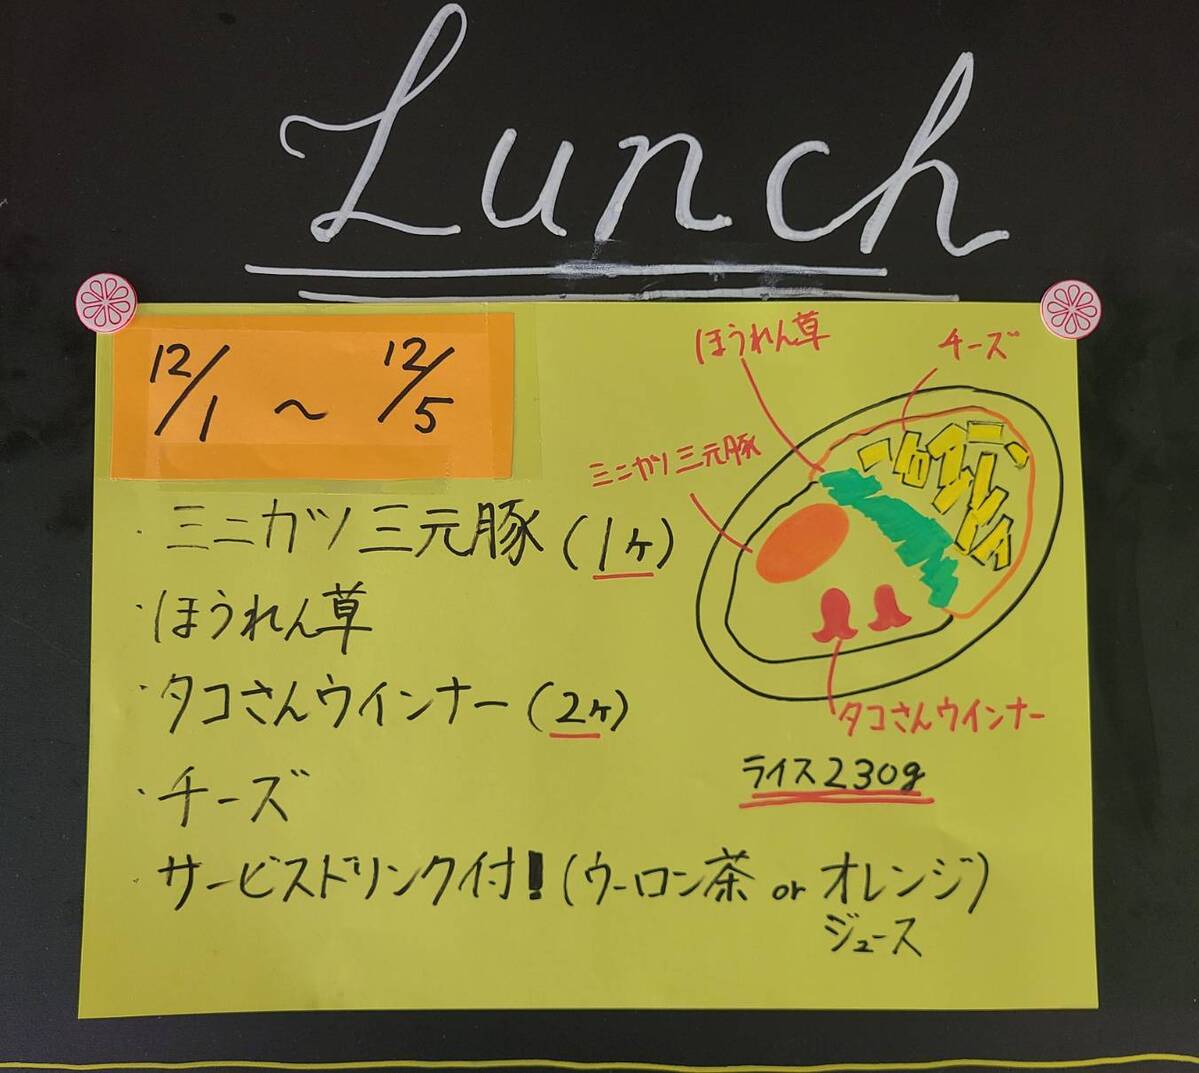 Lunch
12/1 ～ 12/5
ほうれん草
チーズ
ミニカツ三元豚
・ミニカツ三元豚(1ヶ)
・ほうれん草
・タコさんウインナー(2ヶ)
タコさんウインナー
ライス230g
・チーズ
サービスドリンク付!(ウーロン茶 or オレンジ)
ジュース